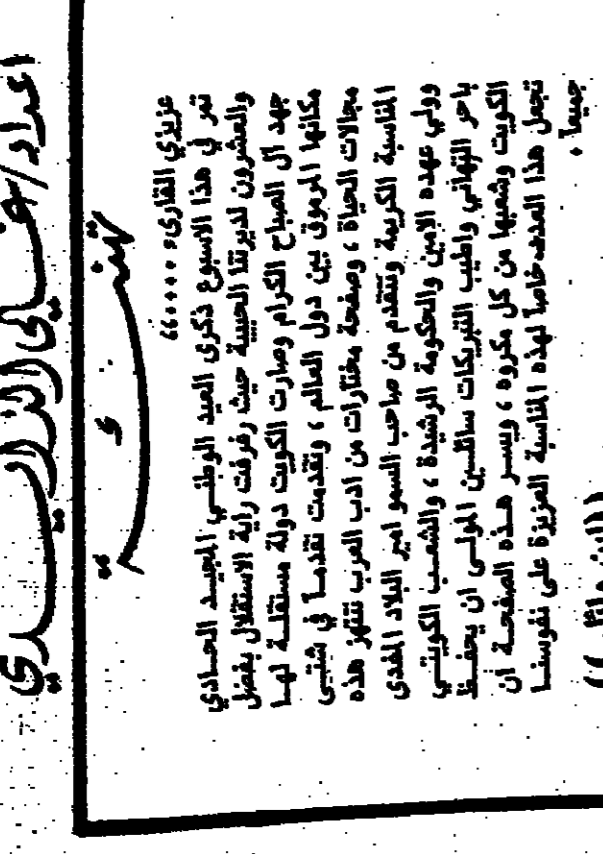 اعداد / غالي الزايدي
تهنئة
عزيزي القارىء ٠٠٠٠٠
تمر في هذا الاسبوع ذكرى العيد الوطنـي المجيـد الحـادي
والعشرون لديرتنا الحبيبة حيث رفرفت راية الاستقلال بفضل
جهد آل الصباح الكرام وصارت الكويت دولة مستقلـة لهـا
مكانها المرموق بين دول العالم ، وتقدمت تقدمـاً في شتـى
مجالات الحياة ، وصفحة مختارات من ادب العرب تنتهز هذه
المناسبة الكريمة وتتقدم من صاحب السمو امير البلاد المفدى
وولي عهده الامين والحكومة الرشيدة ، والشعـب الكويتـي
باحر التهاني واطيب التبريكات سائلـين المولـى ان يحفـظ
الكويت وشعبها من كل مكروه ، ويسـر هـذه الصفحـة ان
تجعل هذا العدد خاصاً لهذه المناسبة العزيزة على نفوسنـا
جميعاً ٠